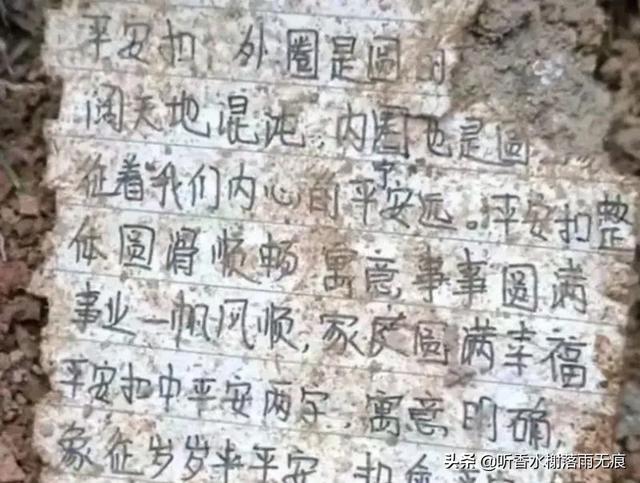 平安扣，外圈是圆的
阔天地混沌，内圈也是圆
征着我们内心的平宁安远。平安扣整
体圆滑顺畅 寓意事事圆满
事业一帆风顺，家庭圆满幸福
平安扣中平安两字，寓意明确，
象征岁岁平平安 扣
头条 @听香水榭落雨无痕